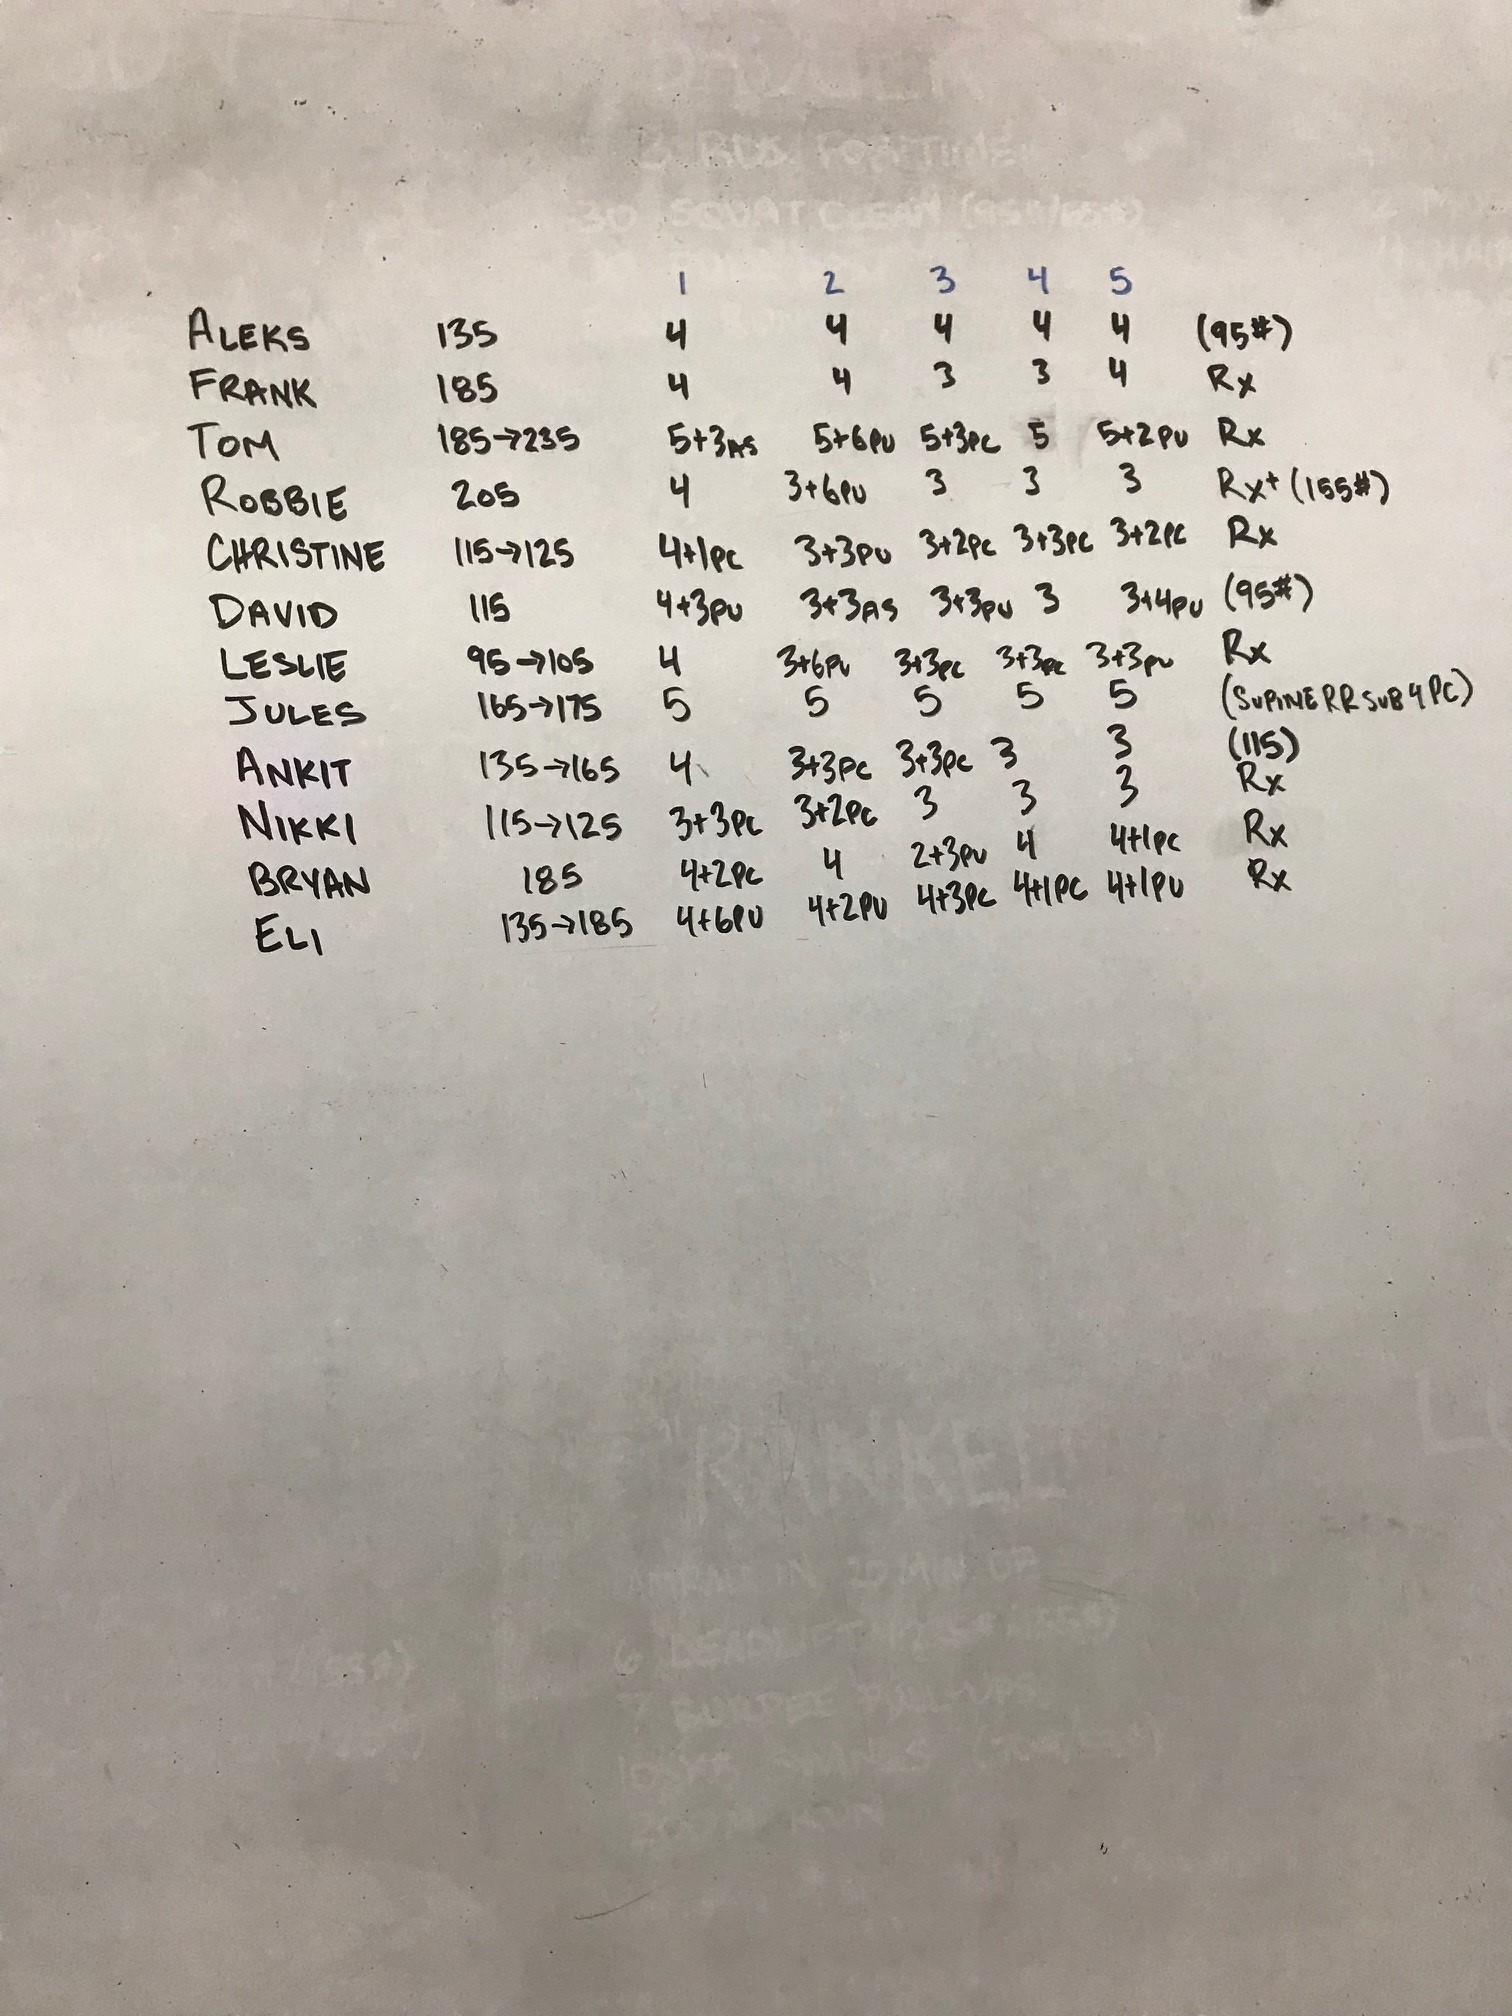 3 RDS FOR TIME
30 SQUAT CLEAN
1 2 3 4 5
ALEKS 135 4 4 4 4 4 (95#)
FRANK 185 4 4 3 3 4 Rx
TOM 185→235 5+3AS 5+6PU 5+3PC 5 5+2PU Rx
ROBBIE 205 4 3+6PU 3 3 3 Rx+ (155#)
CHRISTINE 115→125 4+1PC 3+3PU 3+2PC 3+3PC 3+2PC Rx
DAVID 115 4+3PU 3+3AS 3+3PU 3 3+4PU (95#)
LESLIE 95→105 4 3+6PU 3+3PC 3+3PC 3+3PU Rx
JULES 165→175 5 5 5 5 5 (SUPINE RR SUB 4 PC)
ANKIT 135→165 4 3+3PC 3+3PC 3 3 (115)
NIKKI 115→125 3+3PC 3+2PC 3 3 3 Rx
BRYAN 185 4+2PC 4 2+3PU 4 4+1PC Rx
ELI 135→185 4+6PU 4+2PU 4+3PC 4+1PC 4+1PU Rx
"RANKEL"
AMRAP IN 20 MIN OF
6 DEADLIFT
7 BURPEE PULL-UPS